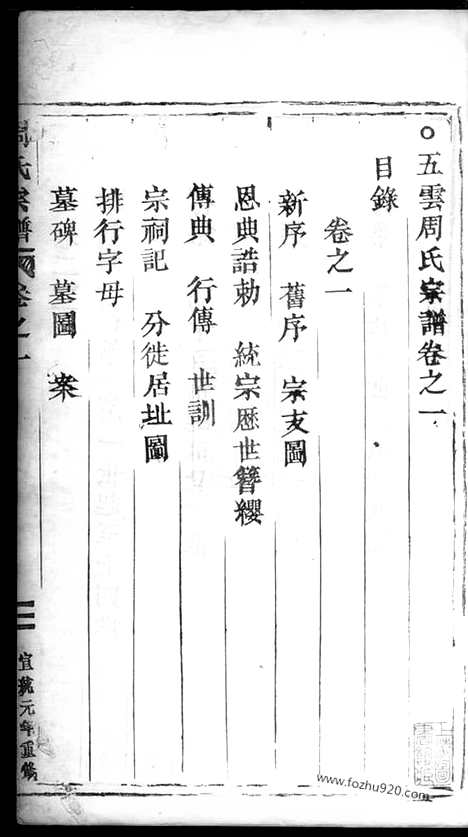 ○五雲周氏宗譜卷之一
目錄
卷之一
新序 舊序 宗支圖
恩典誥勅 統宗歷世簪纓
傳典 行傳 世訓
宗祠記 分徙居址圖
排行字母
墓碑 墓圖 案
周氏宗譜 卷之一
宣統元年重修
www.fozhu920.com